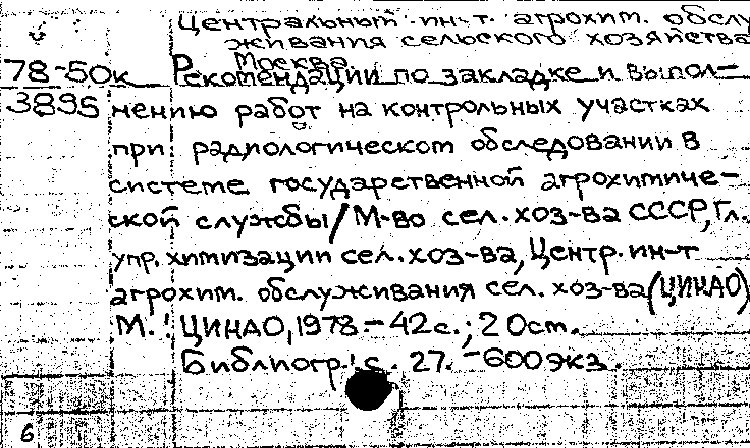 Центральный ин-т. агрохим. обслу
живания сельского хозяйства
Москва.
78-50к Рекомендации по закладке и выпол-
3895 нению работ на контрольных участках
при радиологическом обследовании в
системе государственной агрохимиче-
ской службы/М-во сел. хоз-ва СССР, Гл.
упр. химизации сел. хоз-ва, Центр. ин-т
агрохим. обслуживания сел. хоз-ва (ЦИНАО)
М.: ЦИНАО, 1978.- 42 с.; 20 см.
Библиогр.: с. 27. - 600 экз.
6